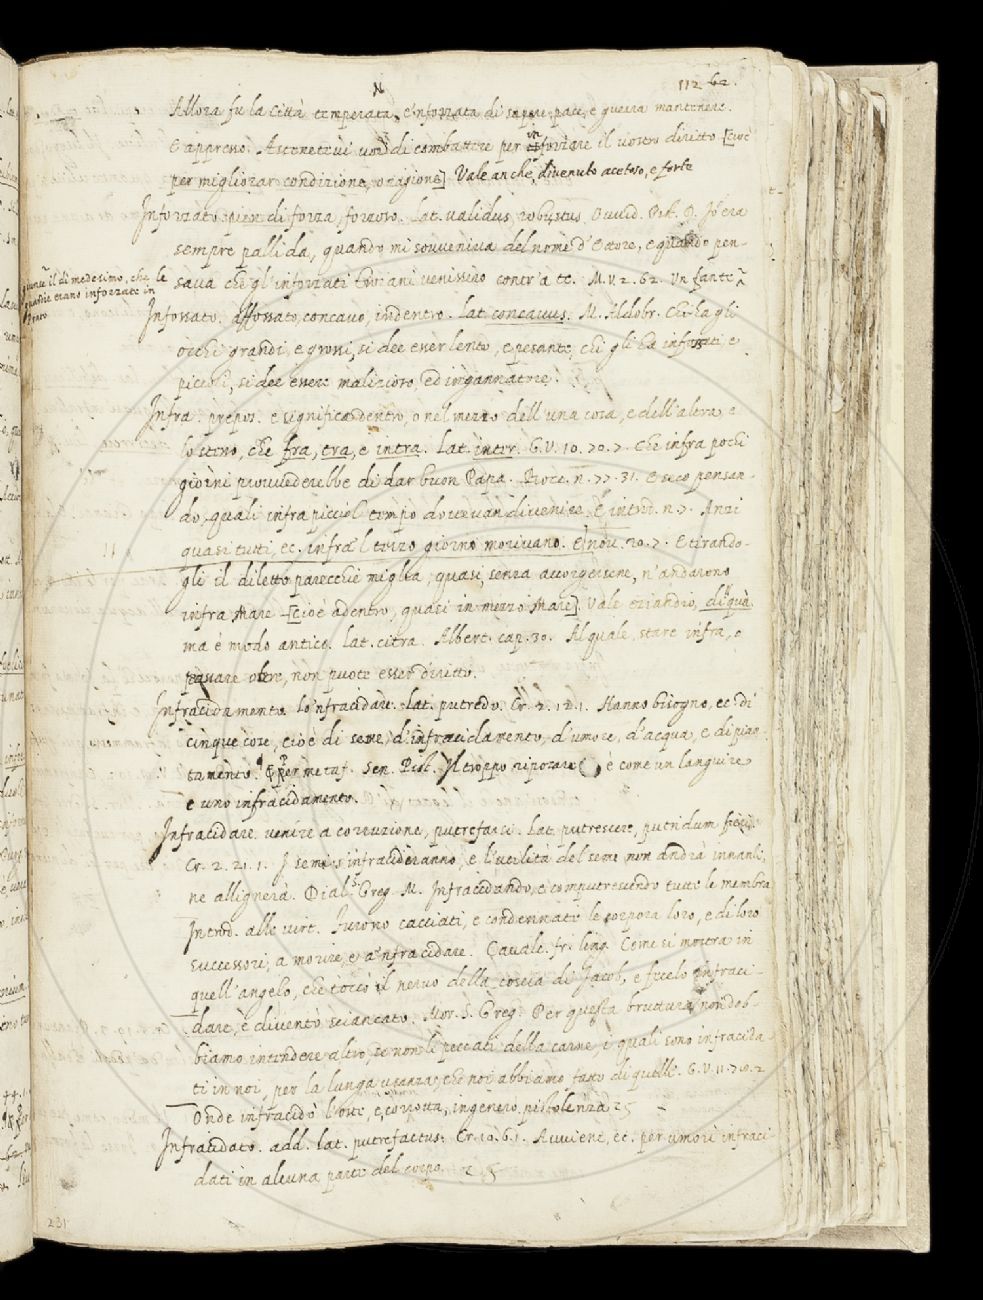 112 62.
Allora fu la Città temperata, e'nforzata di sapere pace, e guerra mantenere.
E appresso. Astenetevi voi di combattere per inforzare il vostro diritto [cioè
per migliorar condizione, o ragione] Vale anche, divenuto acetoso, e forte
Inforzato. pien di forza, forzoso. Lat. validus, robustus. Ovvid. Pist. D. Jo era
sempre pallida, quando mi sovveniva del nome d'Ettore, e quando pen-
sava che gl'inforzati Troiani venissino contr'a te. M.V. 2. 62. Un fante
il dì medesimo, che le
erano inforzate in
Infossato. affossato, concavo, indentro. Lat. concavus. M. Aldobr. Chi ha gli
occhi grandi, e grossi, si dee esser lento, e pesante, chi gli ha infossati, e
piccioli, si dee essere malizioso, ed ingannatore.
Infra. prepos. e significa dentro, o nel mezzo dell'una cosa, e dell'altra e
lo stesso, che fra, tra, e intra. Lat. inter. G.V. 10. 70. 7. Che infra pochi
giorni provvederebbe di dar buon Papa. Bocc. n. 77. 31. E seco pensan-
do, quali infra piccol tempo dovevan divenire. E introd. n. 7. Anzi
quasi tutti, ec. infra'l terzo giorno morivano. E nov. 20. 7. E tirando-
gli il diletto parecchie miglia, quasi senza accorgersene, n'andarono
infra Mare [cioè adentro, quasi in mezzo Mare] Vale eziandio, di quà
ma è modo antico. Lat. citra. Albert. cap. 30. Al quale, stare infra, o
passare oltre, non puote esser diritto.
Infracidamento. Lo'nfracidare. Lat. putredo. Cr. 2. 12. 1. Hanno bisogno, ec. di
cinque cose, cioè di seme, d'infracidamento, d'umore, d'acqua, e di pian-
tamento. per metaf. Sen. Pist. Il troppo riposare è come un languire
e uno infracidamento.
Infracidare. venire a corruzione, putrefarsi. Lat. putrescere, putridum fieri.
Cr. 2. 21. 1. I semi s'infracideranno, e l'utilità del seme non andrà innanzi,
ne allignerà. Dial. S. Greg. M. Infracidando, e computrescendo tutte le membra
Introd. alle virt. Furono cacciati, e condennate le corpora loro, e di loro
successori, a morire, e a 'nfracidare. Cavalc. fr. ling. Come si mostra in
quell'angelo, che toccò il nervo della coscia di Jacob, e fecelo infraci-
dare, e diventò sciancato. Mor. S. Greg. Per questa bruttura, non dob-
biamo intendere altro, se non li peccati della carne, i quali sono infracida-
ti in noi, per la lunga usanza, che noi abbiamo fatto di quelle. G.V. 11. 79. 2
Onde infracidò l'oste e, corrotta, ingenerò pistolenza
Infracidato. add. Lat. putrefactus. Cr. 10. 6. 1. Avviene, ec. per umori infraci-
dati in alcuna parte del corpo.
231